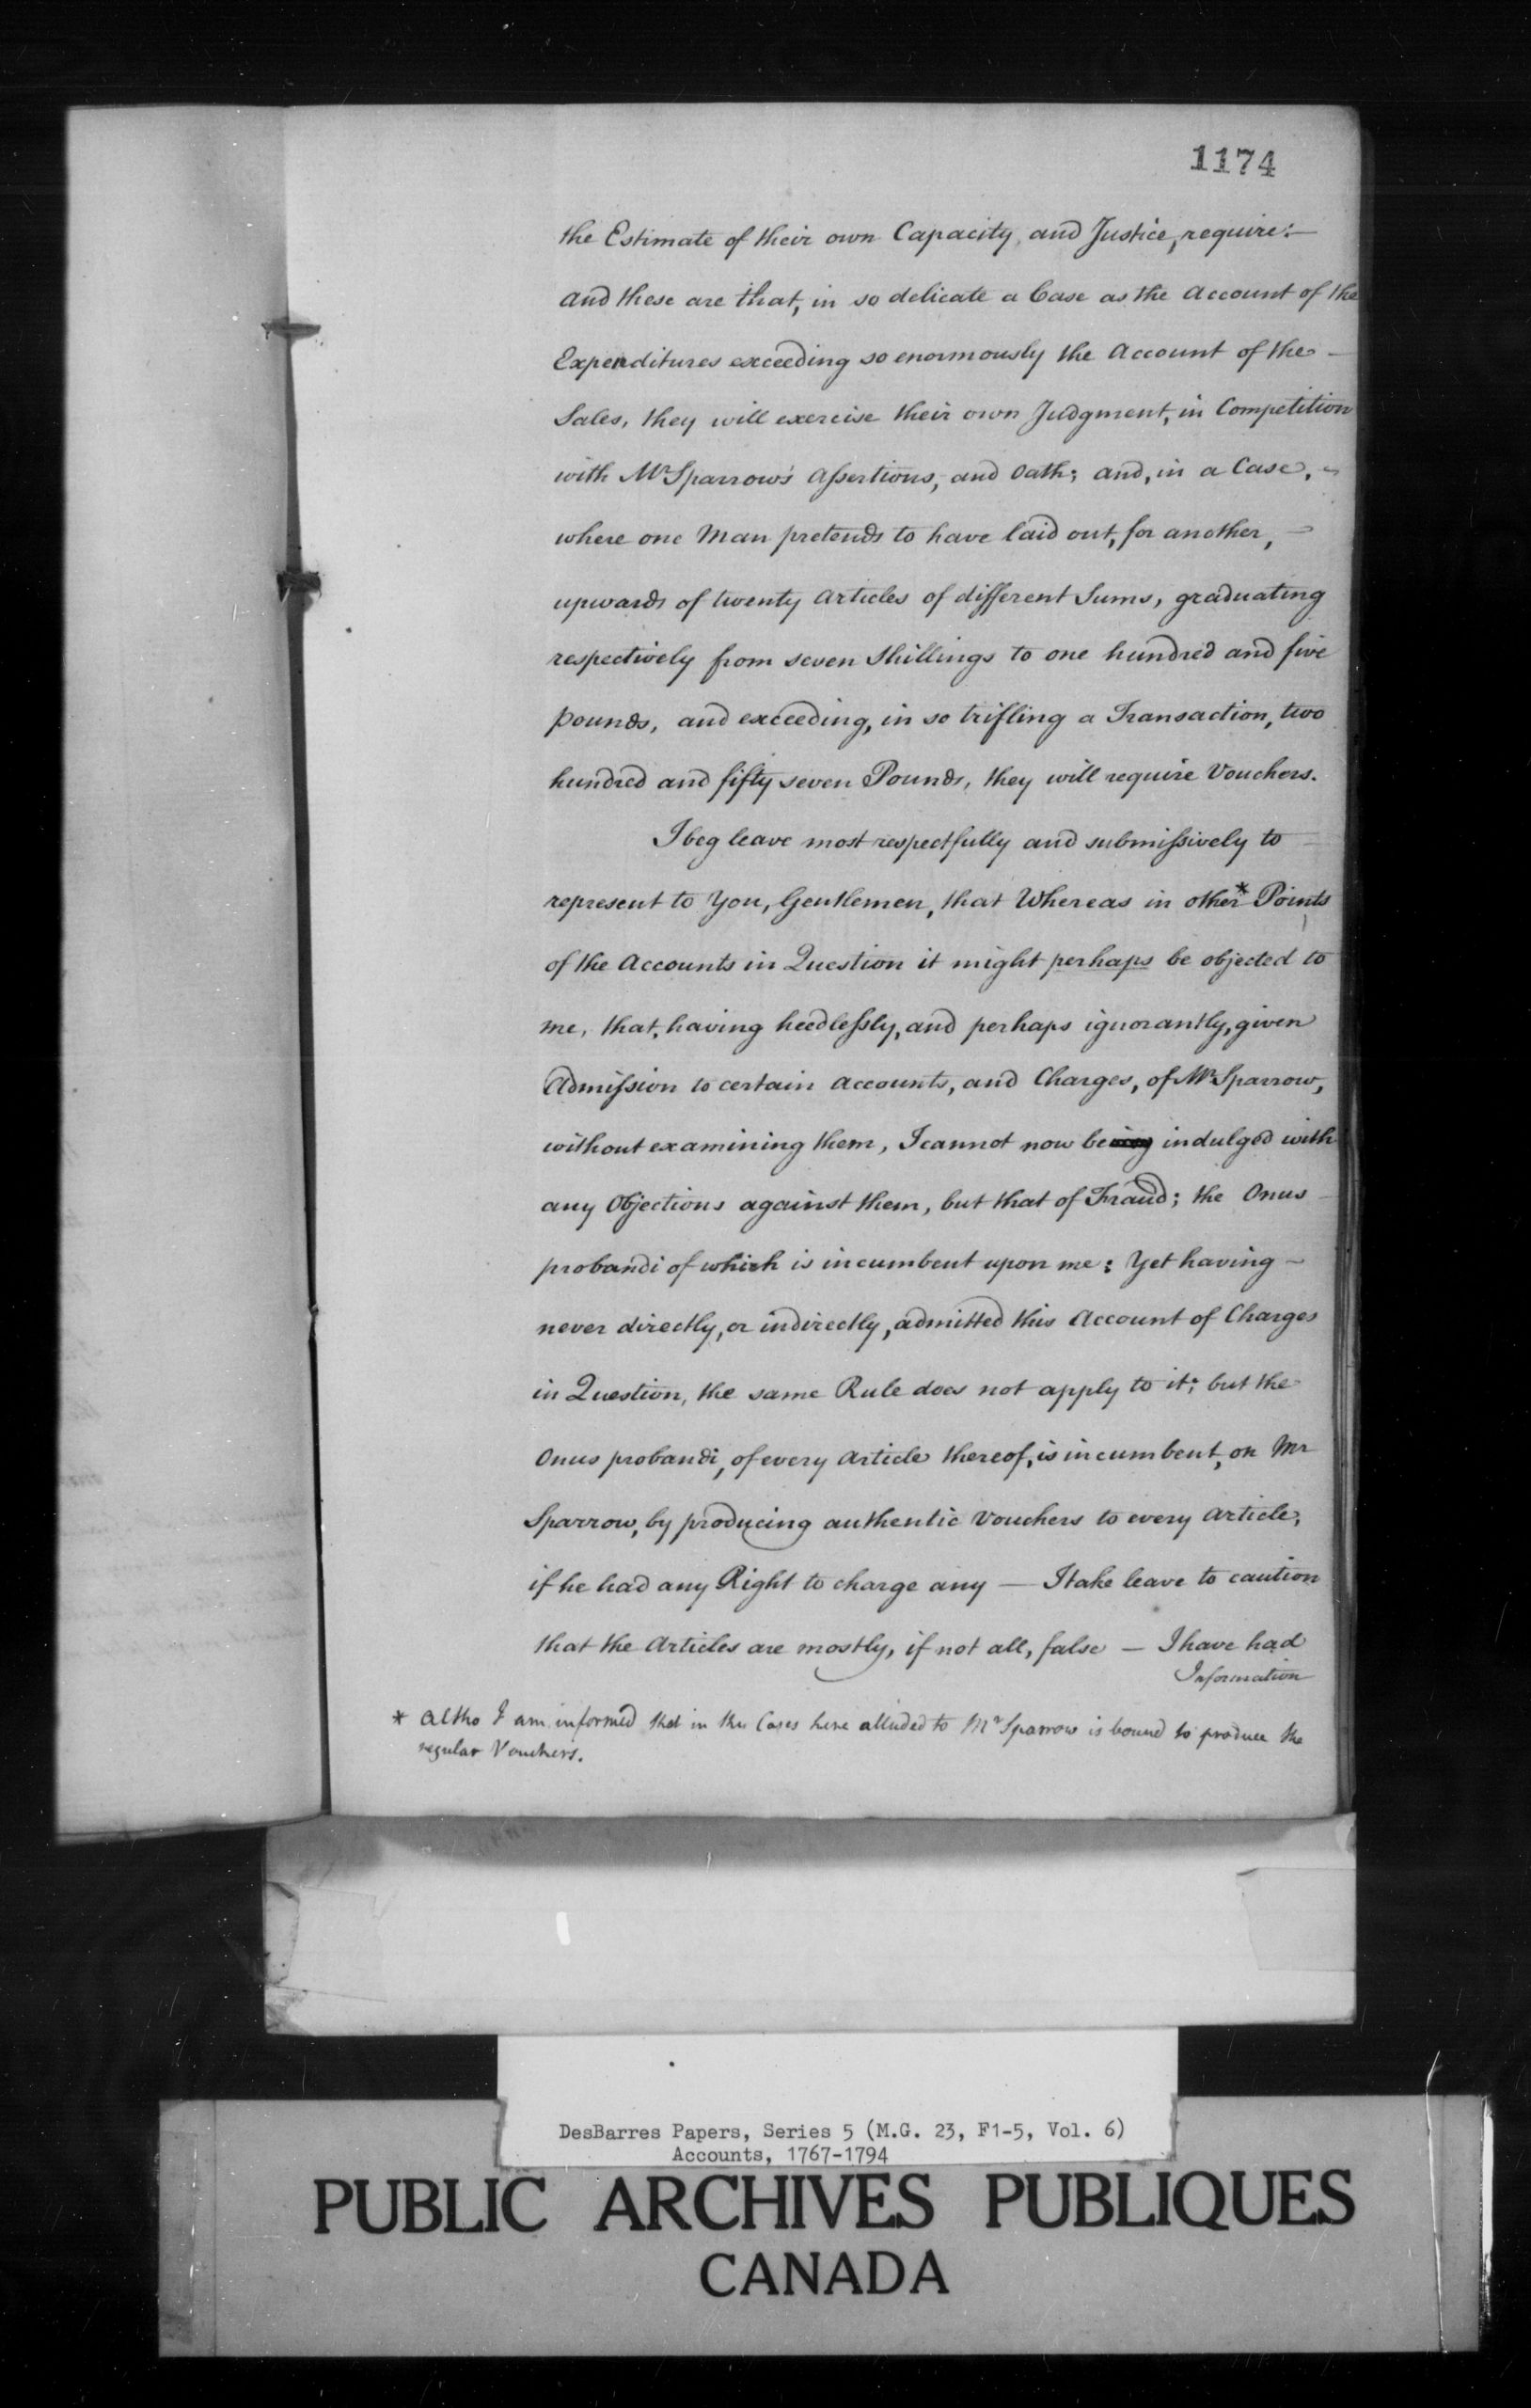 1174
the Estimate of their own Capacity, and Justice, require:—
and these are that, in so delicate a Case as the Account of the
Expenditures exceeding so enormously the Account of the —
Sales, they will exercise their own Judgment, in Competition
with Mr Sparrow's Assertions, and Oath; and, in a Case, —
where one Man pretends to have laid out, for another, —
upwards of twenty Articles of different Sums, graduating
respectively from seven Shillings to one hundred and five
pounds, and exceeding, in so trifling a Transaction, two
hundred and fifty seven Pounds, they will require Vouchers.
I beg leave most respectfully and submissively to
represent to You, Gentlemen, that Whereas in other* Points
of the Accounts in Question it might perhaps be objected to
me, that, having heedlessly, and perhaps ignorantly, given
Admission to certain Accounts, and Charges, of Mr Sparrow,
without examining them, I cannot now be indulged with
any Objections against them, but that of Fraud; the Onus —
probandi of which is incumbent upon me: Yet having —
never directly, or indirectly, admitted this Account of Charges
in Question, the same Rule does not apply to it; but the
Onus probandi, of every Article thereof, is incumbent, on Mr
Sparrow, by producing authentic Vouchers to every Article,
if he had any Right to charge any — I take leave to caution
that the Articles are mostly, if not all, false — I have had
Information
* Altho I am informed that in the Cases here alluded to Mr Sparrow is bound to produce the
regular Vouchers.
DesBarres Papers, Series 5 (M.G. 23, F1-5, Vol. 6)
Accounts, 1767-1794
PUBLIC ARCHIVES PUBLIQUES
CANADA